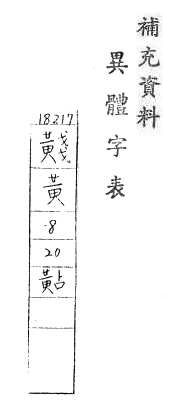 補充資料
異體字表
18217
黃
8
20
黇